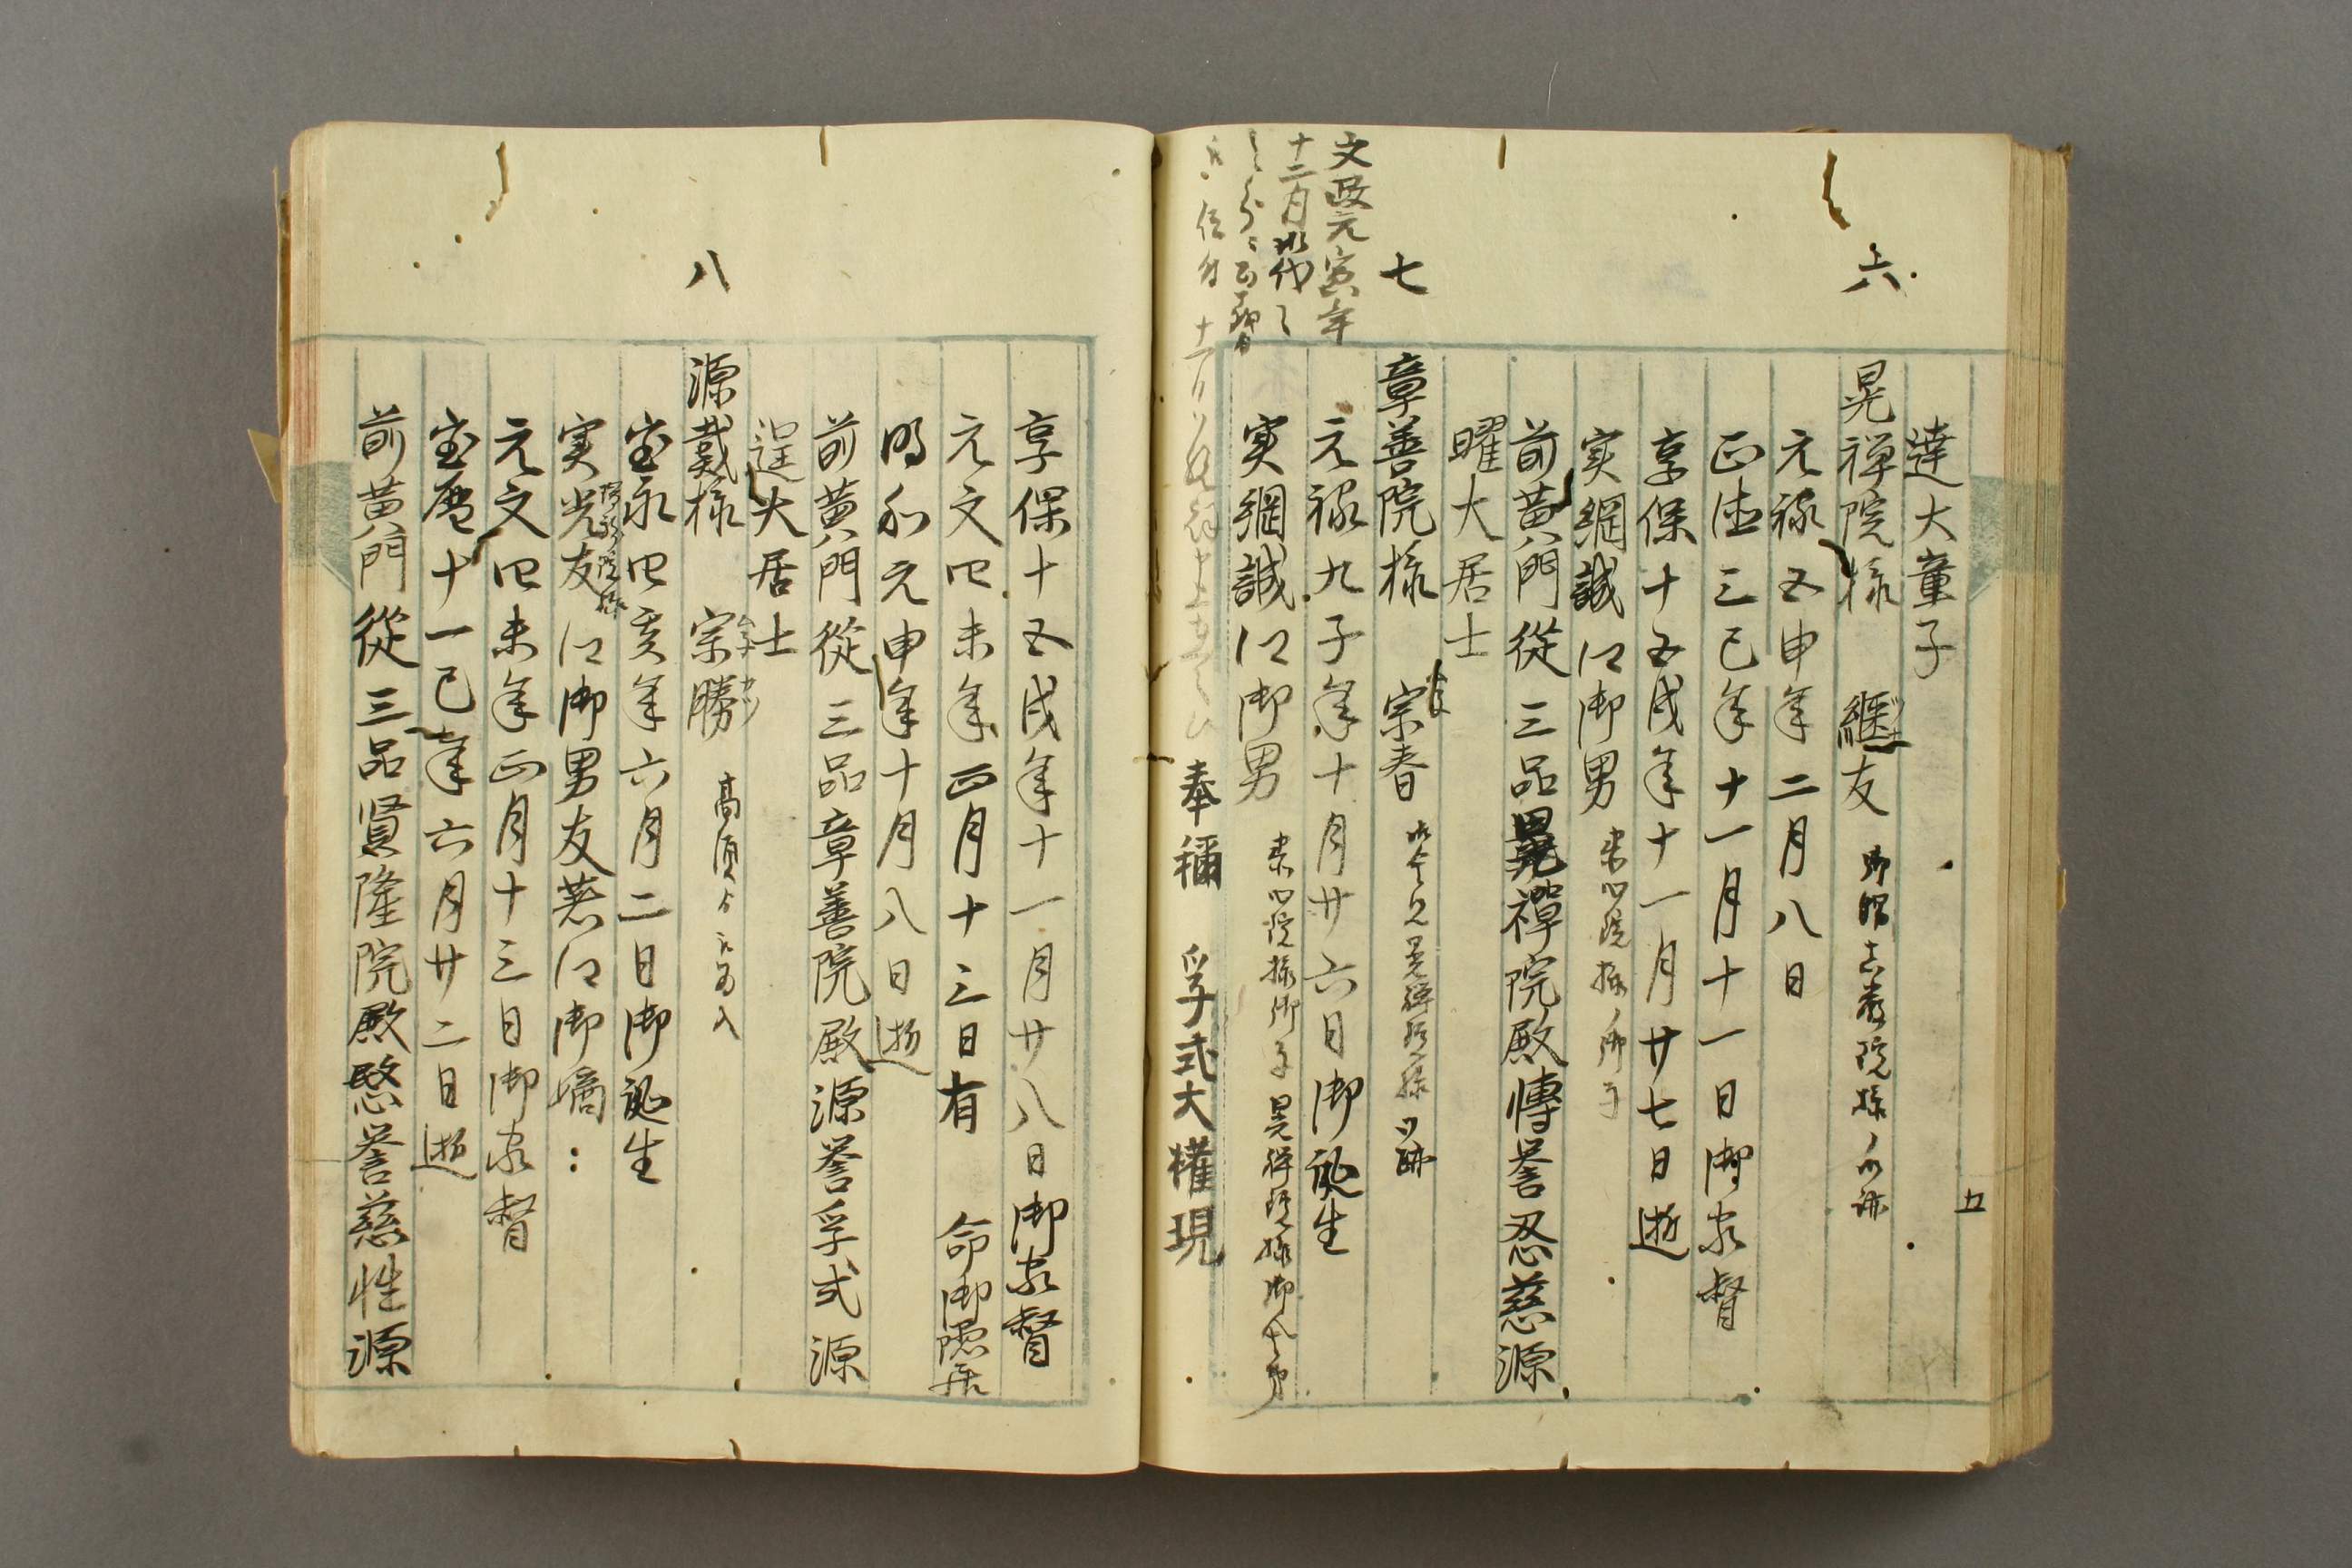 達大童子
六
晃禅院様 継友
元禄五申年二月八日
正徳三巳年十一月十一日御家督
享保十五戌年十一月廿七日逝
実綱誠公御男
前黄門従三品晃禅院殿傳誉忍慈源
曜大居士
七
章善院様 宗春
元禄九子年十月廿六日御誕生
実綱誠公御男
文政元寅年
奉稱 孚式大權現
五
享保十五戌年十一月廿八日御家督
元文四未年正月十三日有 命御隠居
明和元申年十月八日逝
前黄門従三品章善院殿源誉孚式源
逞大居士
八
源戴様 宗勝
宝永四亥年六月二日御誕生
実光友公御男友著公御嫡
元文四未年正月十三日御家督
宝暦十一巳年六月廿二日逝
前黄門従三品賢隆院殿愍誉慈性源